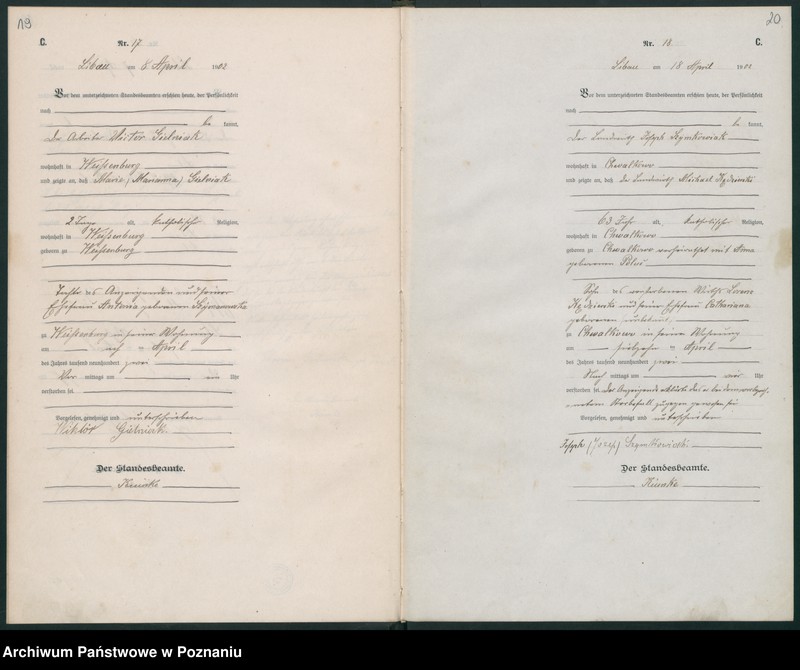 19
C.
Nr. 17
Libau am 8 April 1902
Vor dem unterzeichneten Standesbeamten erschien heute, der Persönlichkeit
nach
be kannt,
Der Arbeiter Victor Gielniak
wohnhaft in Weißenburg
und zeigte an, daß Marie (Marianna) Gielniak
2 Jahre alt, katholischer Religion,
wohnhaft in Weißenburg
geboren zu Weißenburg
Tochter des Anzeigenden und seiner
Ehefrau Antonia geborenen
zu Weißenburg in seiner Wohnung
am acht ten April
des Jahres tausend neunhundert zwei
Vor mittags um ein Uhr
verstorben sei.
Vorgelesen, genehmigt und unterschrieben
Wiktór Gielniak
Der Standesbeamte.
20
C.
Nr. 18
Libau am 18 April 1902
Vor dem unterzeichneten Standesbeamten erschien heute, der Persönlichkeit
nach
be kannt,
Der Landwirth Joseph Szymkowiak
wohnhaft in Chwalkowo
und zeigte an, daß der Landwirth Michael
63 Jahr alt, katholischer Religion,
wohnhaft in Chwalkowo
geboren zu Chwalkowo verheirathet mit Anna
geborenen
Sohn des verstorbenen Wirths Lorenz
und seiner Ehefrau Catharina
geborenen
zu Chwalkowo in seiner Wohnung
am siebzehn ten April
des Jahres tausend neunhundert zwei
Nach mittags um vier Uhr
verstorben sei. Der Anzeigende erklärte daß er bei dem
Sterbefall zugegen gewesen sei
Vorgelesen, genehmigt und unterschrieben
Joseph (Jozep) Szymkowiak
Der Standesbeamte.
Archiwum Państwowe w Poznaniu